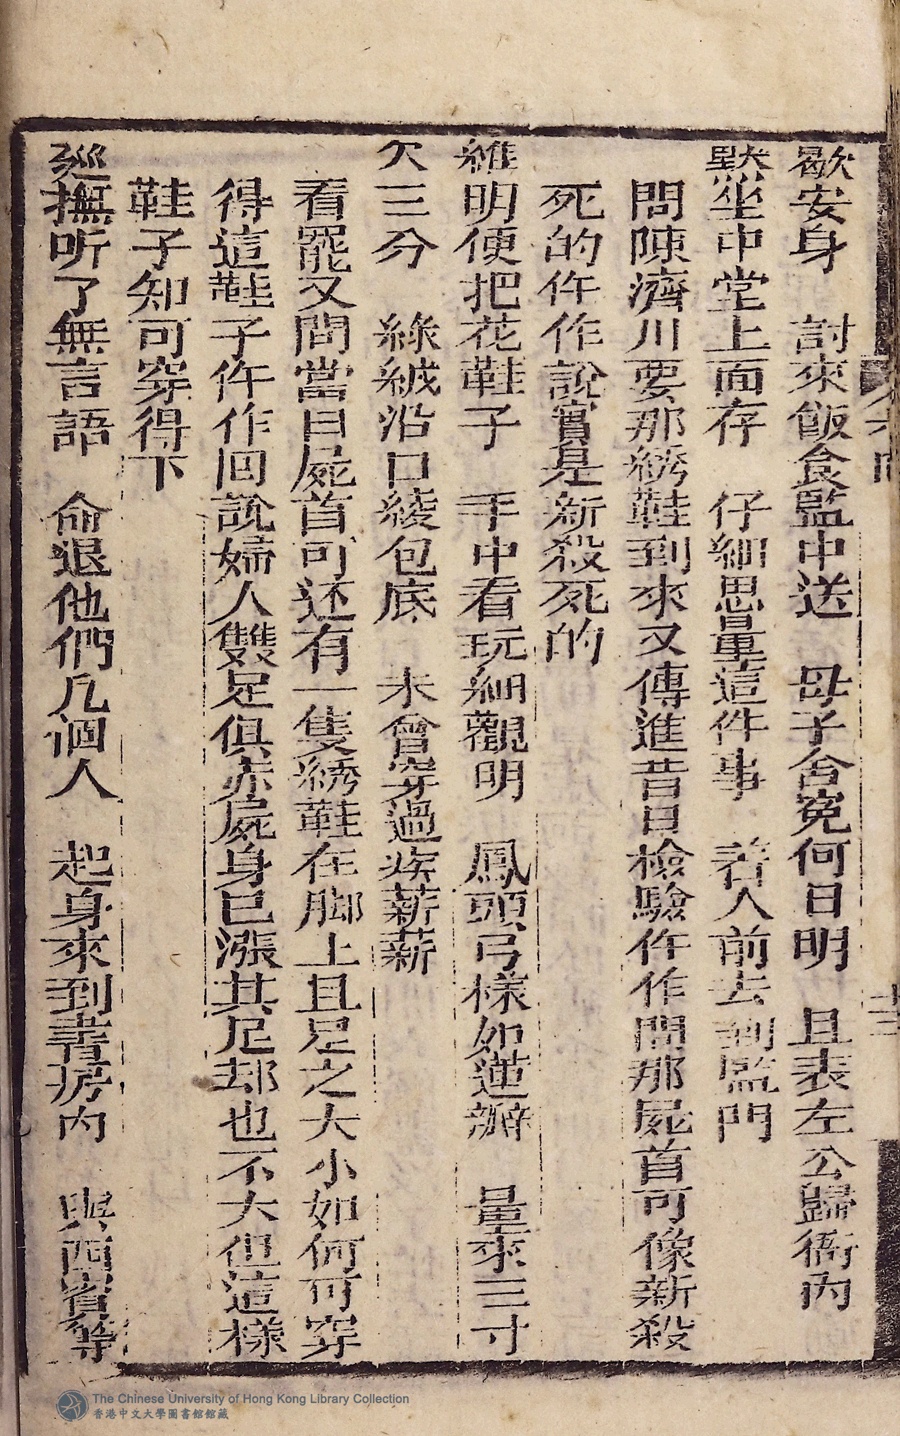 歇安身　討來飯食監中送　母子含冤何日明　且表左公歸衙內
默坐中堂上面存　仔細思量這件事　着人前去到監門
問陳濟川要那綉鞋到來又傳進昔日檢驗仵作問那屍首可像新殺
死的仵作說實是新殺死的
維明便把花鞋子　手中看玩細觀明　鳳頭弓樣如蓮瓣　量來三寸
欠三分　綠絨沿口綾包底　未曾穿過嶄薪薪
看罷又問當日屍首可还有一隻綉鞋在脚上且足之大小如何可穿
得這鞋子仵作回說婦人雙足俱赤屍身已漲其足却也不大但這樣
鞋子知可穿得下
廵撫听了無言語　命退他們几個人　起身來到書房內　與西賓等
The Chinese University of Hong Kong Library Collection
香港中文大學圖書館館藏